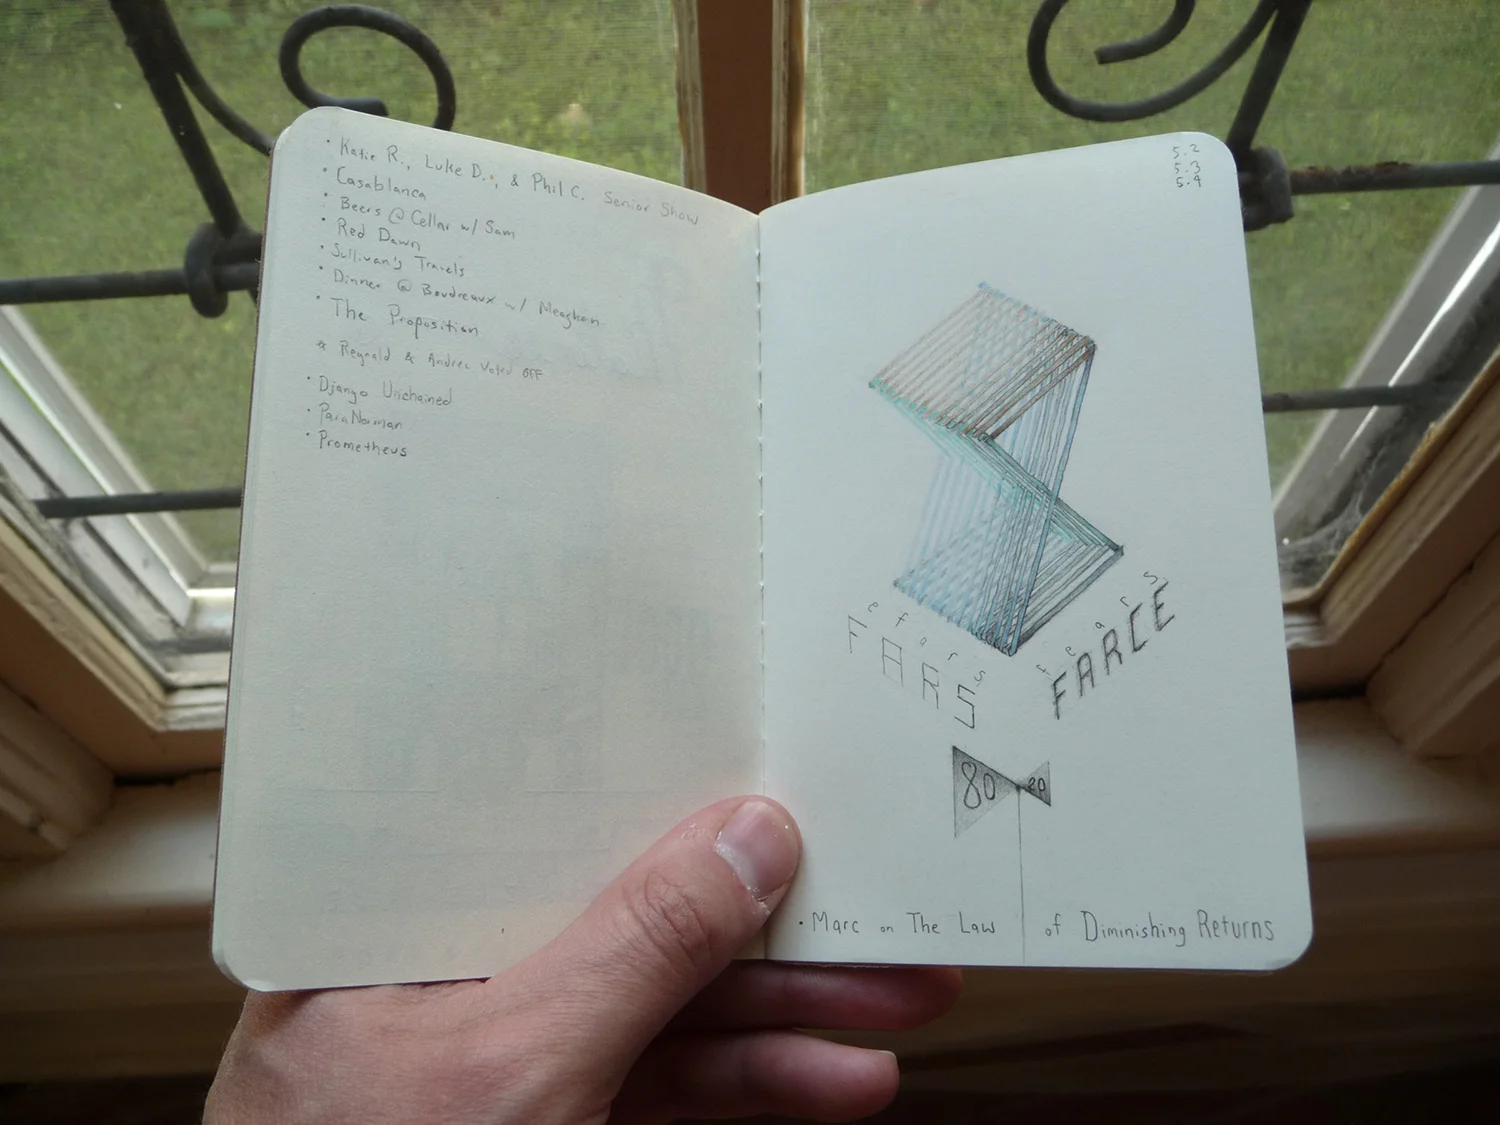 • Katie R., Luke D., & Phil C. Senior Show
• Casablanca
• Beers @ Cellar w/ Sam
• Red Dawn
• Sullivan's Travels
• Dinner @ Boudreaux w/ Meaghan
• The Proposition
* Reynald & Andrea Voted OFF
• Django Unchained
• ParaNorman
• Prometheus
5.2
5.3
5.4
e f a r s
FARS
f e a r s
FARCE
80 20
• Marc on The Law of Diminishing Returns